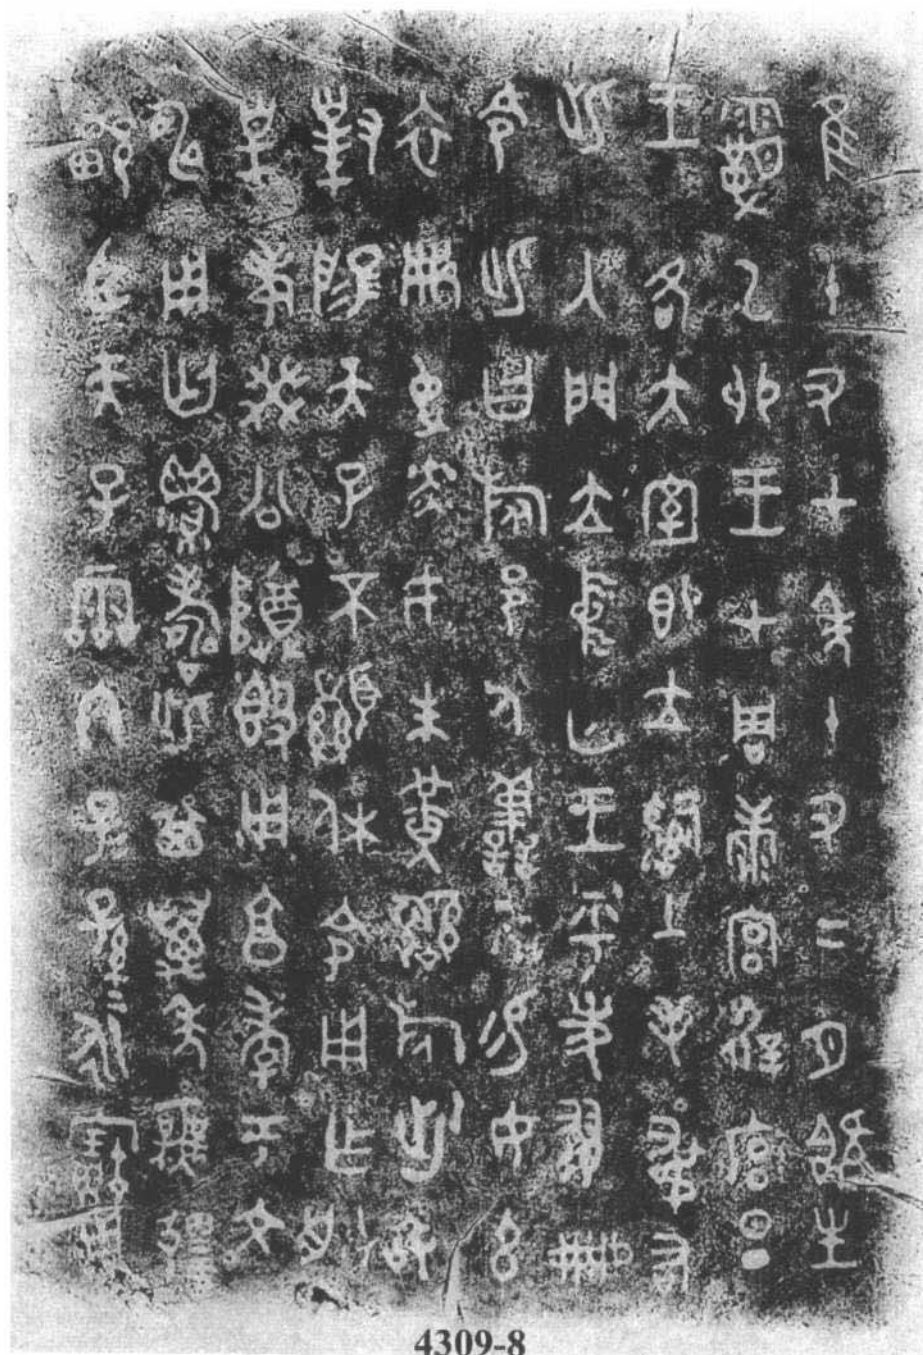 隹十又七年十又二月既生
霸乙卯王才周康宮徲宮旦
王各大室即立𤔲土毛弔右
此入門立廷王乎史翏冊
令此曰旅邑人善夫易玄
衣黹屯赤朱黃䜌旅此敢
對揚天子不顯休令用乍朕
皇考癸公尊𣪘用亯孝于文
申用匄眉壽此其萬年無彊
畯臣天子霝冬子子孫孫永寶用
4309-8